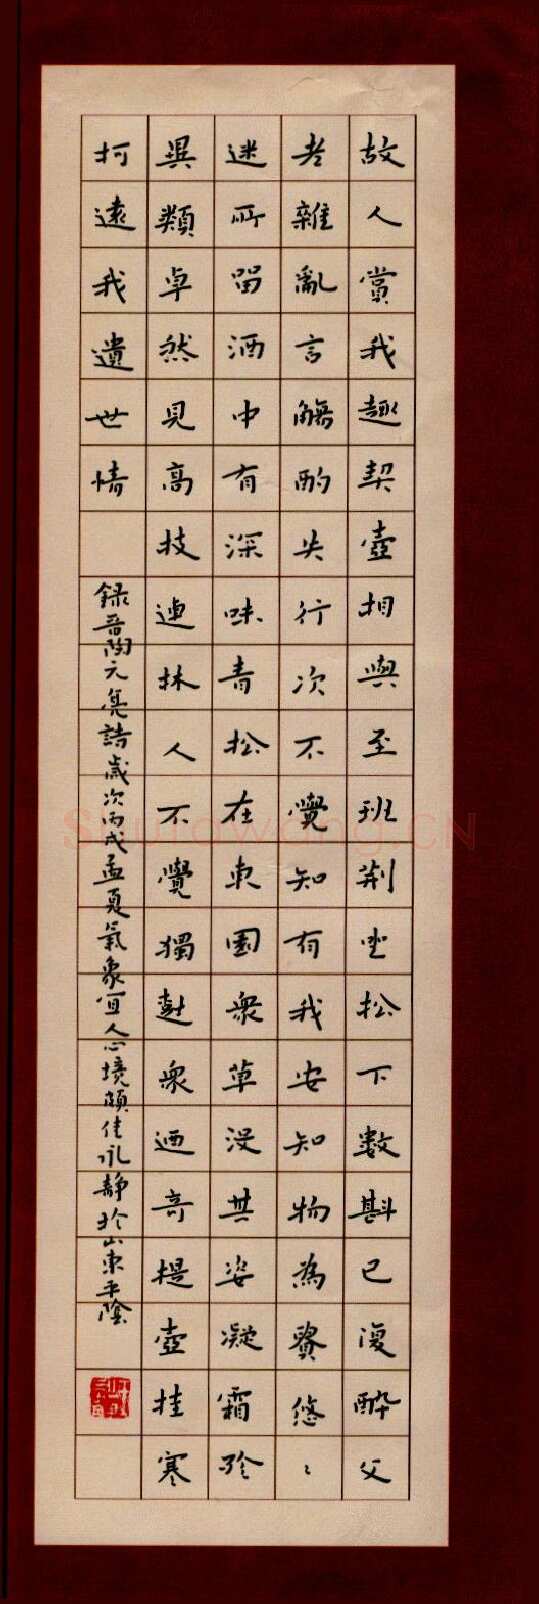 故人賞我趣挈壺相與至班荊坐松下數斟已復醉父
老雜亂言觴酌失行次不覺知有我安知物為貴悠〻
迷所留酒中有深味青松在東園衆草沒其姿凝霜殄
異類卓然見高枝連林人不覺獨樹衆迺奇提壺挂寒
柯遠我遺世情
録晉陶元亮詩歲次丙戌孟夏氣象宜人心境頗佳永靜於山東平陰
Shufawang.CN